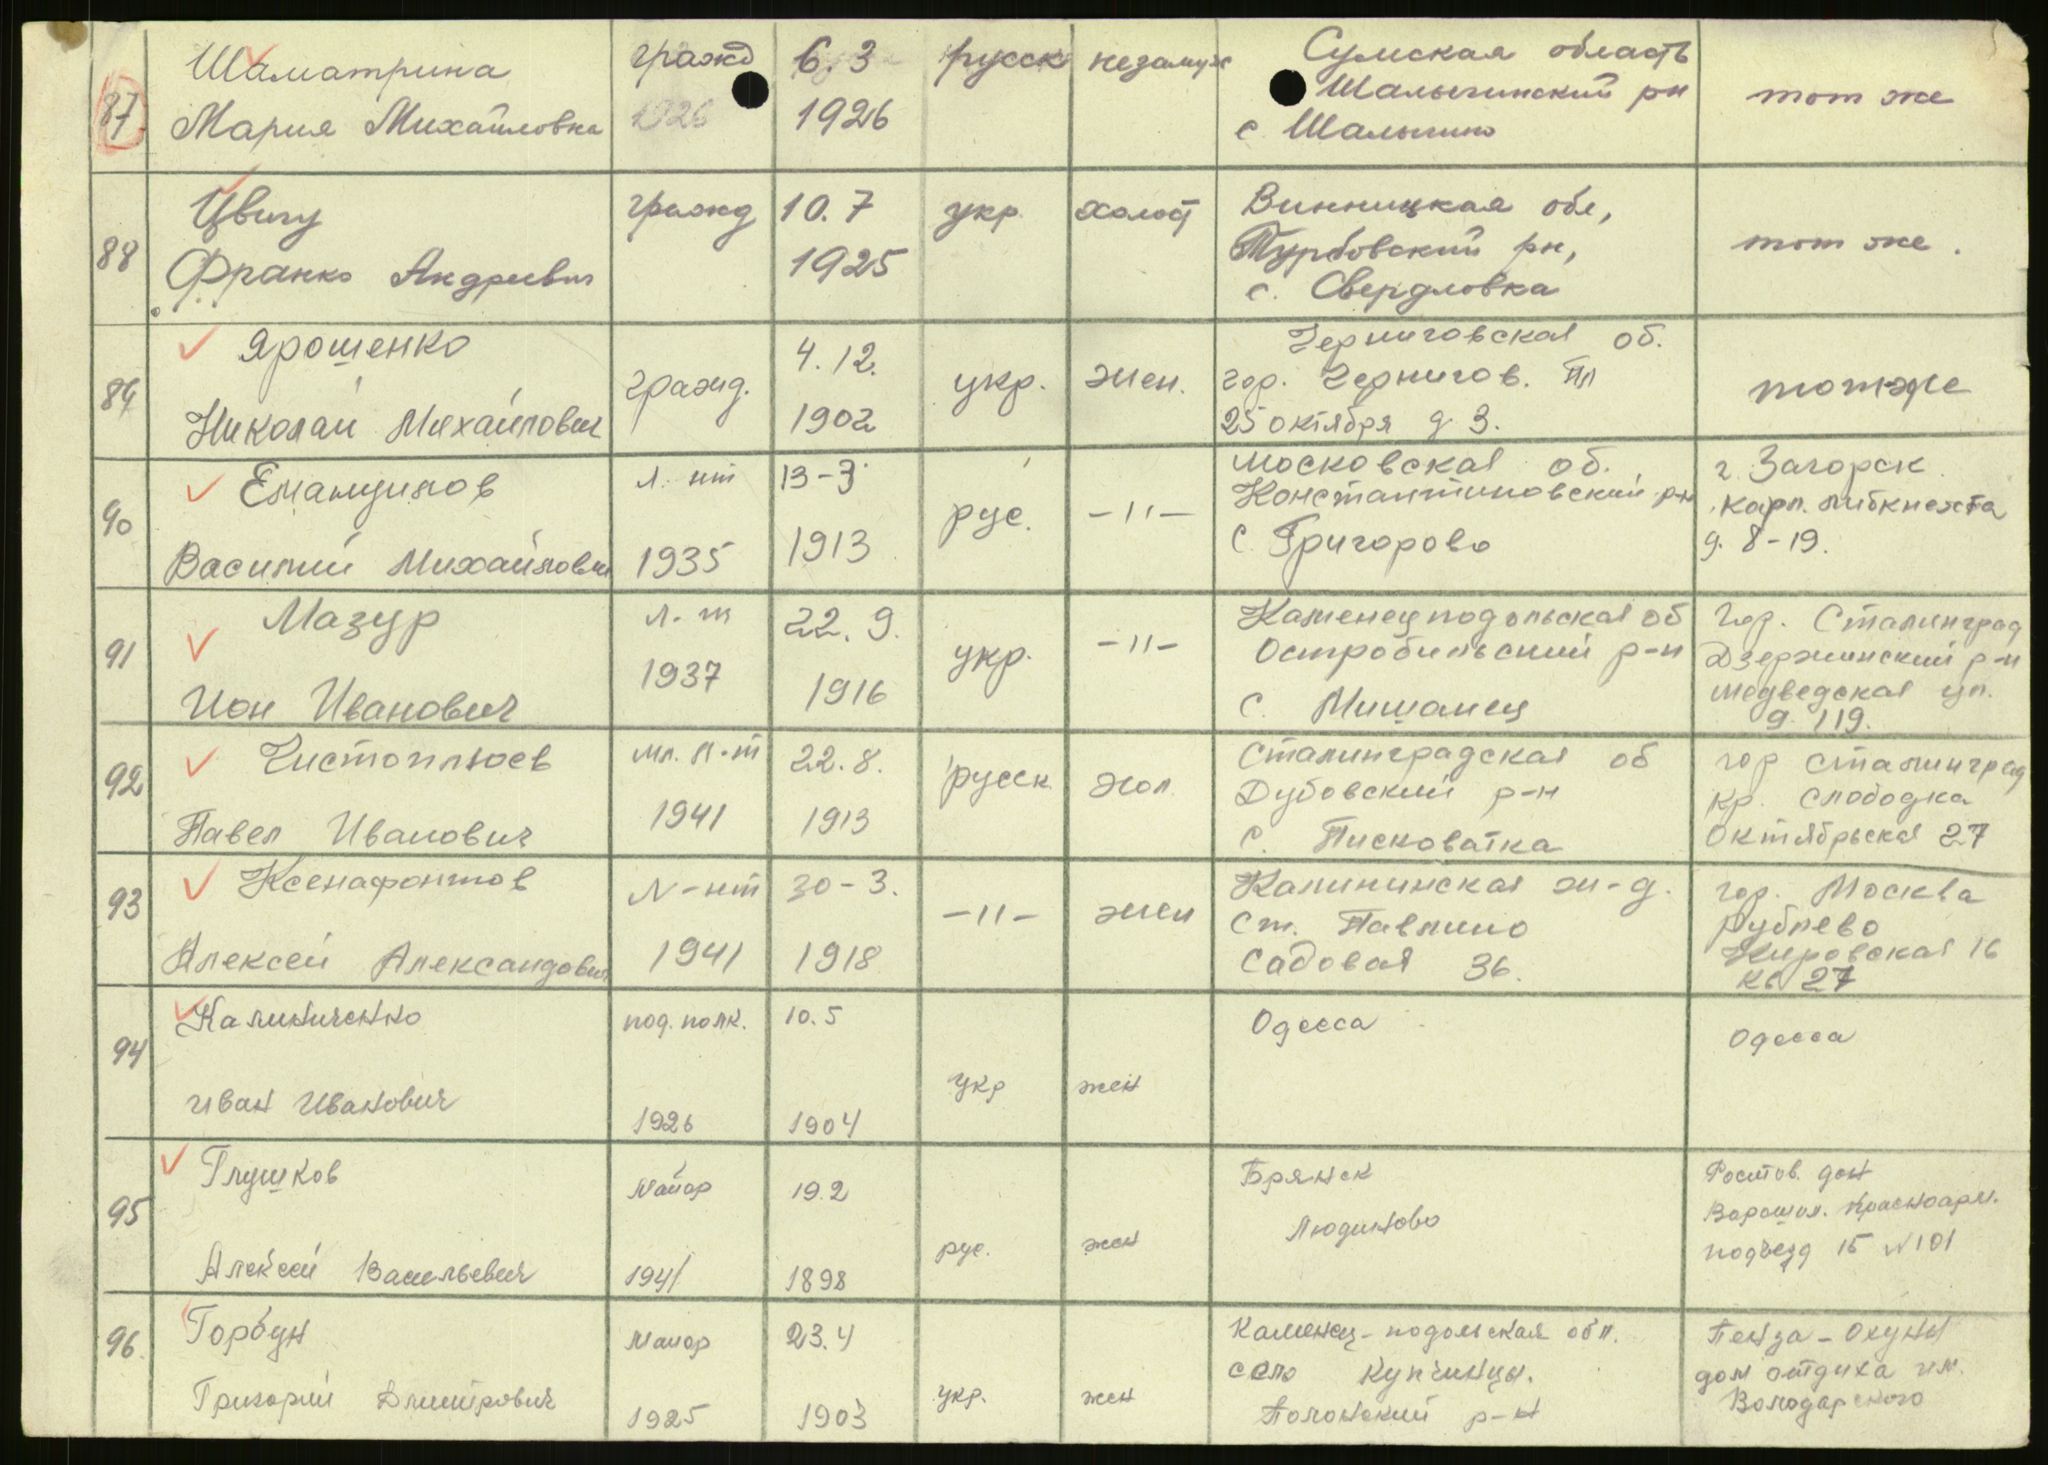 87 Шаматрина гражд 6.3 русск незамуж Сумская область
Мария Михайловна 1926 1926 Шалыгинский рн тот же
с. Шалыгино
88 Цвигу гражд 10.7 укр холост Винницкая обл,
Франко Андреевич 1925 Турбовский рн, тот же.
с. Свердловка
89 Ярошенко гражд. 4.12. укр. жен. Черниговская об.
Николай Михайлович 1902 гор. Чернигов. Пл тот-же
25 октября д 3.
90 Емамунлов л. нт 13-3 рус. -"- Московская об. г. Загорск
Василий Михайлович 1935 1913 Константиновский р-н Карл. Либкнехта
с. Григорово д. 8-19.
91 Мазур л-т 22.9. укр. -"- Каменецподольская об гор. Сталинград
Ион Иванович 1937 1916 Остробильский р-н Дзержинский р-н
с. Мишанец Медведская ул.
д. 119.
92 Чистоплюев мл. л-т 22.8. русск хол. Сталинградская об гор Сталинград
Павел Иванович 1941 1913 Дубовский р-н кр. Слободка
с. Писковатка Октябрьская 27
93 Ксенафонтов л-нт 30-3. -"- жен Калининская ж-д. гор. Москва
Алексей Александович 1941 1918 ст. Павлино Рублево
Садовая 36. Кировская 16
кв 27
94 Калиниченко под. полк. 10.5 укр жен Одесса Одесса
Иван Иванович 1926 1904
95 Глушков Майор 19.2 рус. жен Брянск Ростов. дон
Алексей Васильевич 1941 1898 Людиново Ворошил. Красноарм.
подъезд 15 № 101
96. Горбун Майор 23.4 укр. жен Каменец-подольская обл. Пенза - Ахуны
Григорий Дмитрович 1925 1903 село Купчинцы. дом отдыха им.
Полонский р-н Володарского